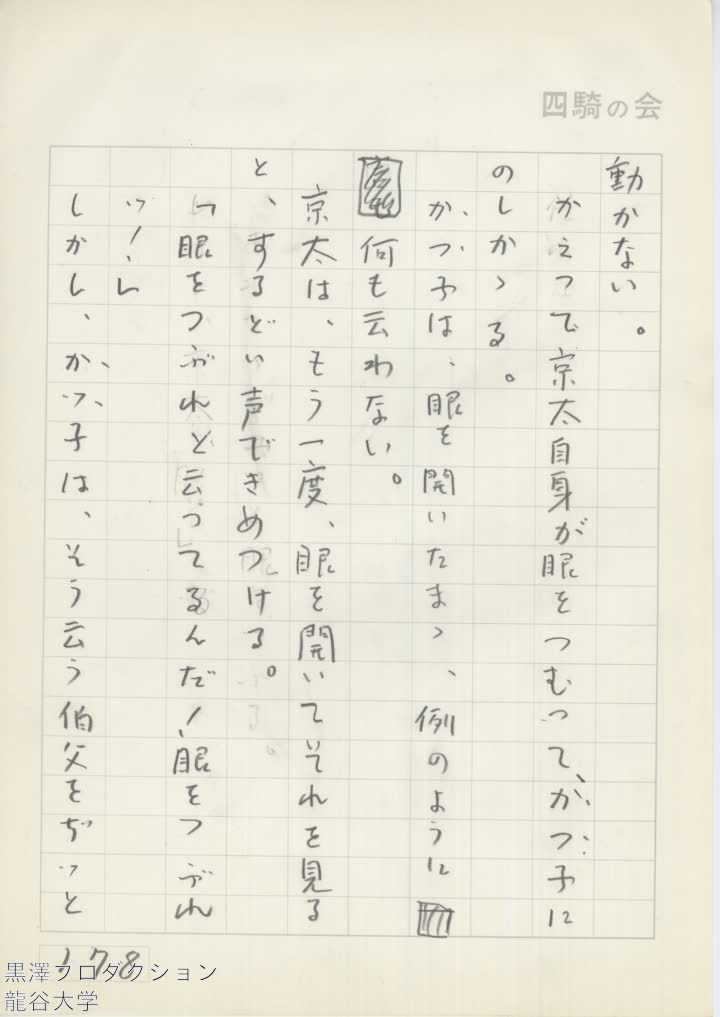 四騎の会
動かない。
かえって京太自身が眼をつむって、かつ子に
のしかゝる。
かつ子は、眼を開いたまゝ、例のように
何も云わない。
京太は、もう一度、眼を開いてそれを見る
と、するどい声できめつける。
「眼をつぶれと云ってるんだ！眼をつぶれ
ッ！」
しかし、かつ子は、そう云う伯父をぢッと
178
黒澤プロダクション
龍谷大学